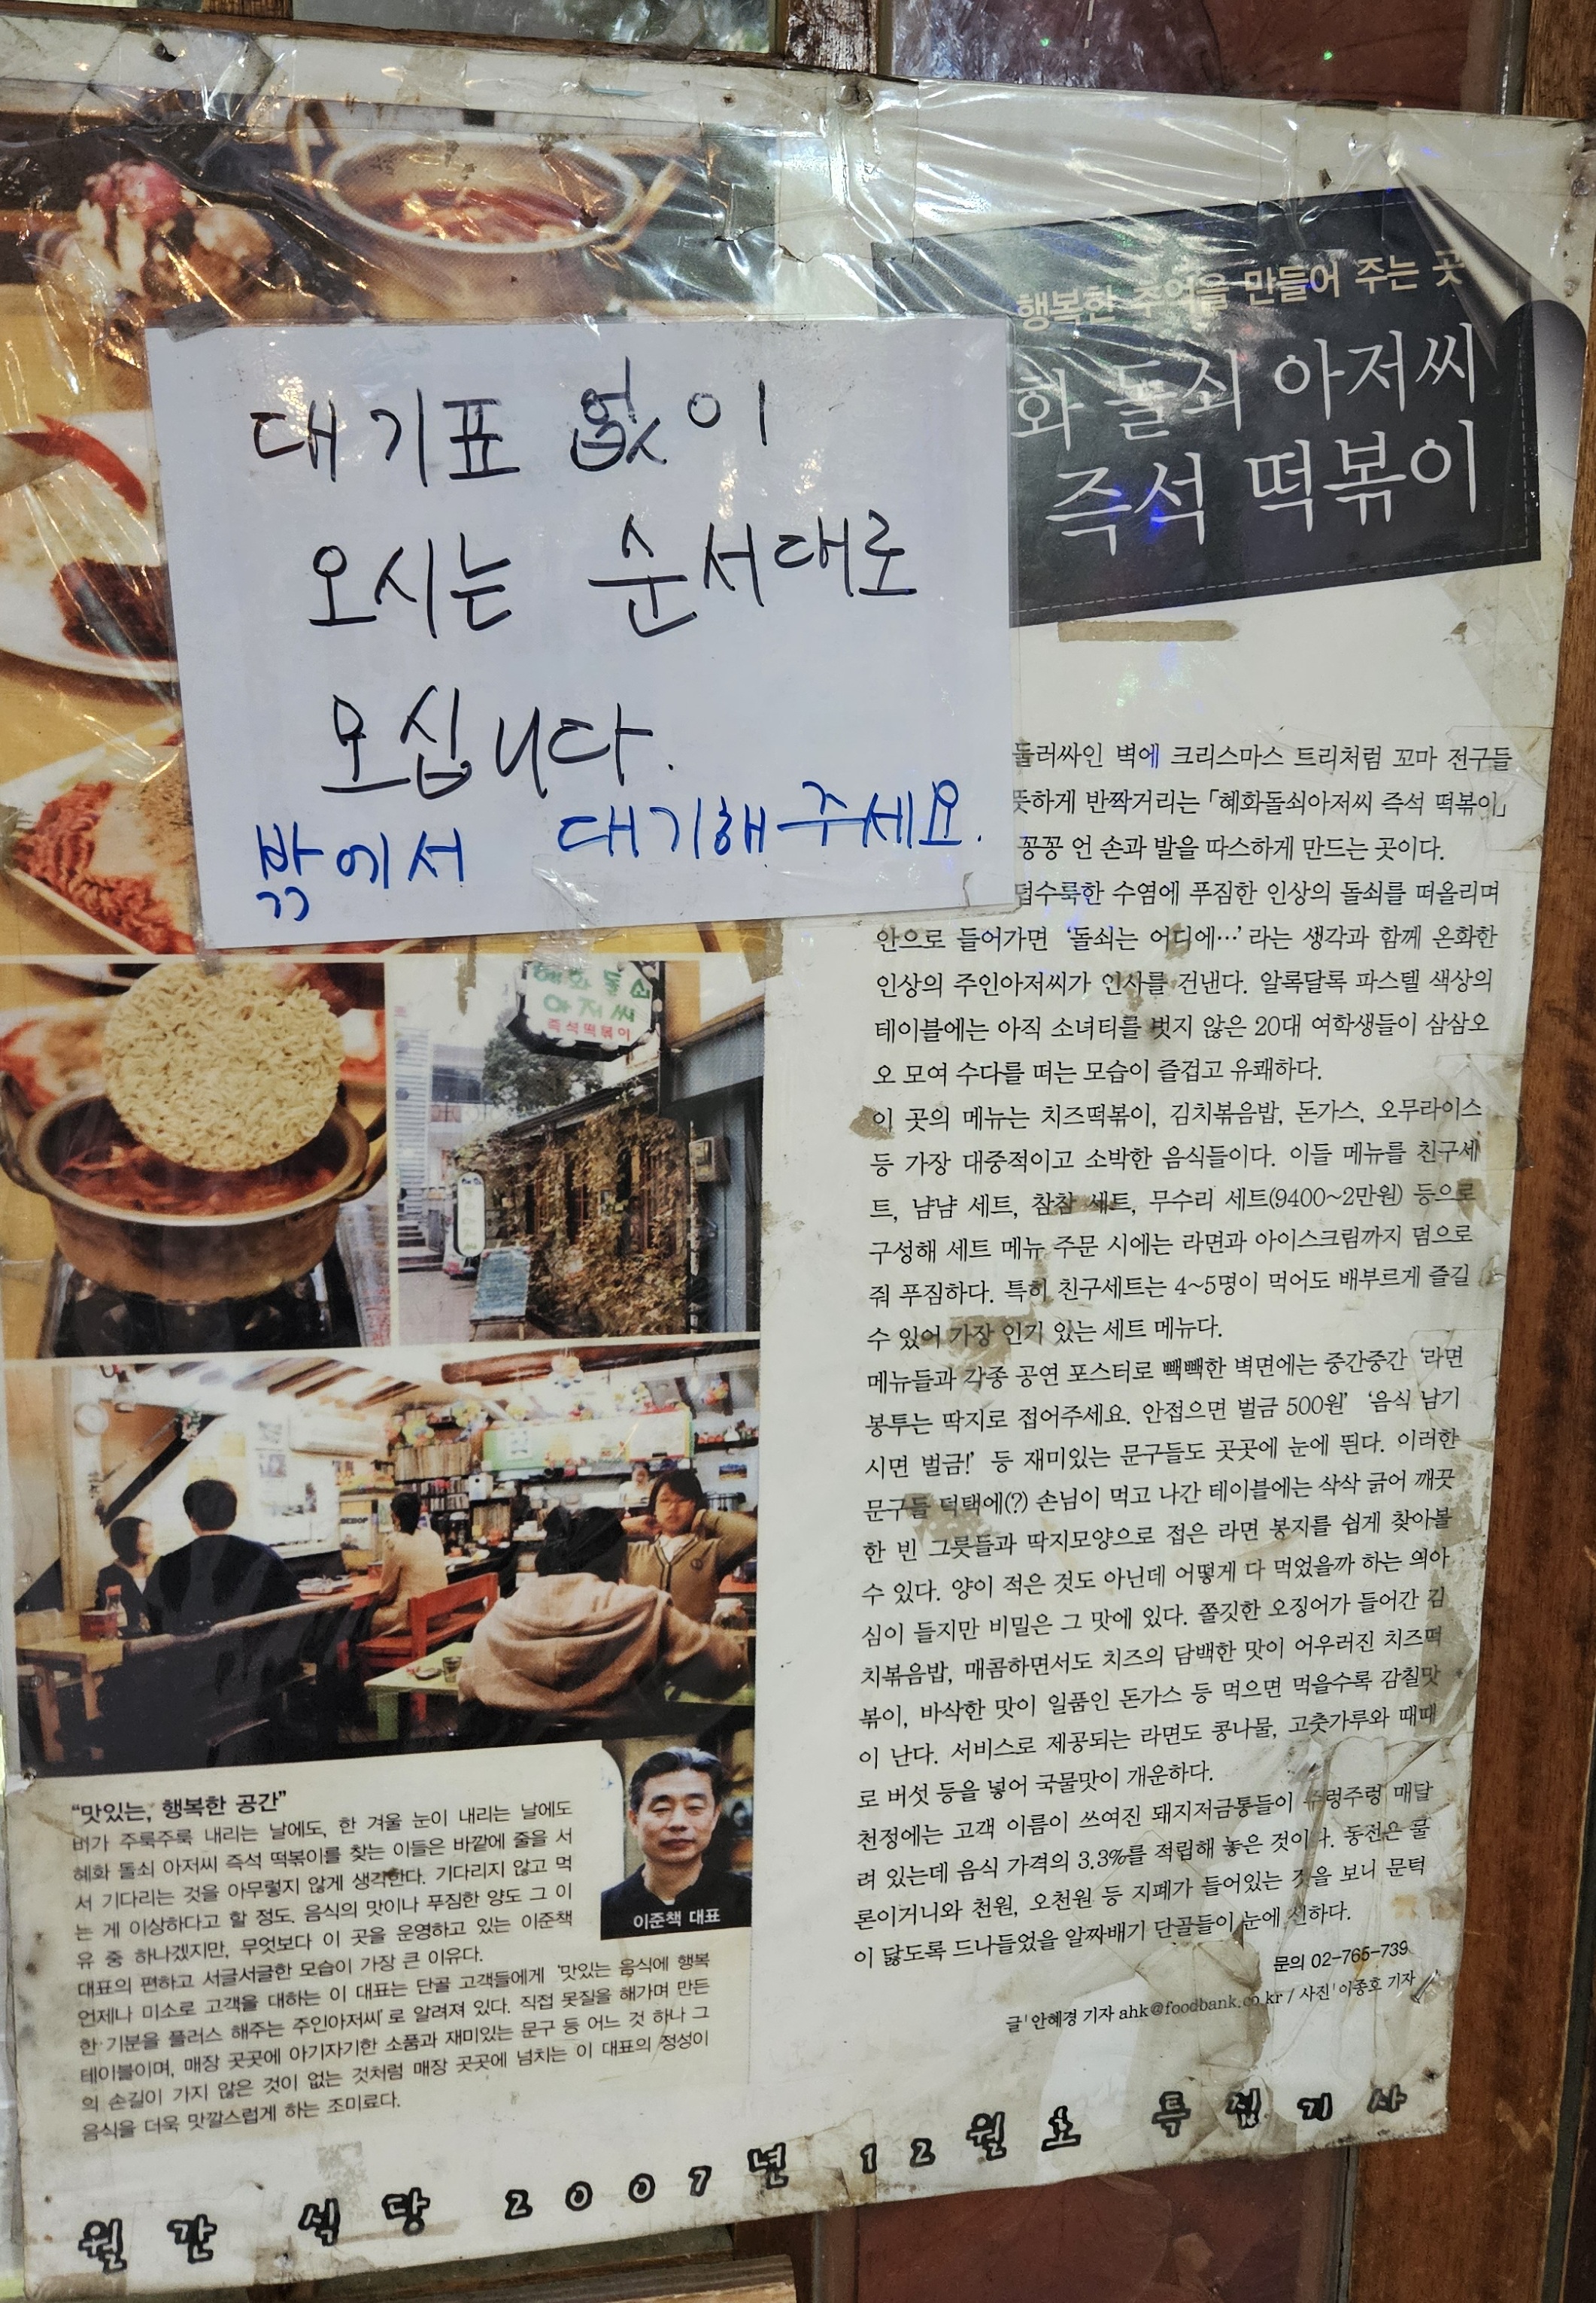 행복한 추억을 만들어 주는 곳
화 돌쇠 아저씨
즉석 떡볶이
대기표 없이
오시는 순서대로
모십니다.
밖에서 대기해 주세요.
둘러싸인 벽에 크리스마스 트리처럼 꼬마 전구들
뜻하게 반짝거리는 「혜화돌쇠아저씨 즉석 떡볶이」
꽁꽁 언 손과 발을 따스하게 만드는 곳이다.
덥수룩한 수염에 푸짐한 인상의 돌쇠를 떠올리며
안으로 들어가면 ‘돌쇠는 어디에…’라는 생각과 함께 온화한
인상의 주인아저씨가 인사를 건낸다. 알록달록 파스텔 색상의
테이블에는 아직 소녀티를 벗지 않은 20대 여학생들이 삼삼오
오 모여 수다를 떠는 모습이 즐겁고 유쾌하다.
이 곳의 메뉴는 치즈떡볶이, 김치볶음밥, 돈가스, 오무라이스
등 가장 대중적이고 소박한 음식들이다. 이들 메뉴를 친구세
트, 냠냠 세트, 참참 세트, 무수리 세트(9400~2만원) 등으로
구성해 세트 메뉴 주문 시에는 라면과 아이스크림까지 덤으로
줘 푸짐하다. 특히 친구세트는 4~5명이 먹어도 배부르게 즐길
수 있어 가장 인기 있는 세트 메뉴다.
메뉴들과 각종 공연 포스터로 빽빽한 벽면에는 중간중간 ‘라면
봉투는 딱지로 접어주세요. 안접으면 벌금 500원’ ‘음식 남기
시면 벌금!’ 등 재미있는 문구들도 곳곳에 눈에 띈다. 이러한
문구들 덕택에(?) 손님이 먹고 나간 테이블에는 삭삭 긁어 깨끗
한 빈 그릇들과 딱지모양으로 접은 라면 봉지를 쉽게 찾아볼
수 있다. 양이 적은 것도 아닌데 어떻게 다 먹었을까 하는 의아
심이 들지만 비밀은 그 맛에 있다. 쫄깃한 오징어가 들어간 김
치볶음밥, 매콤하면서도 치즈의 담백한 맛이 어우러진 치즈떡
볶이, 바삭한 맛이 일품인 돈가스 등 먹으면 먹을수록 감칠맛
이 난다. 서비스로 제공되는 라면도 콩나물, 고춧가루와 때때
로 버섯 등을 넣어 국물맛이 개운하다.
천정에는 고객 이름이 쓰여진 돼지저금통들이 주렁주렁 매달
려 있는데 음식 가격의 3.3%를 적립해 놓은 것이다. 동전은 물
론이거니와 천원, 오천원 등 지폐가 들어있는 것을 보니 문턱
이 닳도록 드나들었을 알짜배기 단골들이 눈에 선하다.
문의 02-765-739
글 안혜경 기자 ahk@foodbank.co.kr / 사진 이종호 기자
혜화 돌쇠
아저씨
즉석떡볶이
“맛있는, 행복한 공간”
비가 주룩주룩 내리는 날에도, 한 겨울 눈이 내리는 날에도
혜화 돌쇠 아저씨 즉석 떡볶이를 찾는 이들은 바깥에 줄을 서
서 기다리는 것을 아무렇지 않게 생각한다. 기다리지 않고 먹
는 게 이상하다고 할 정도. 음식의 맛이나 푸짐한 양도 그 이
유 중 하나겠지만, 무엇보다 이 곳을 운영하고 있는 이준책
대표의 편하고 서글서글한 모습이 가장 큰 이유다.
언제나 미소로 고객을 대하는 이 대표는 단골 고객들에게 ‘맛있는 음식에 행복
한 기분을 플러스 해주는 주인아저씨’로 알려져 있다. 직접 못질을 해가며 만든
테이블이며, 매장 곳곳에 아기자기한 소품과 재미있는 문구 등 어느 것 하나 그
의 손길이 가지 않은 것이 없는 것처럼 매장 곳곳에 넘치는 이 대표의 정성이
음식을 더욱 맛깔스럽게 하는 조미료다.
이준책 대표
월간 식당 2007년 12월호 특집기사